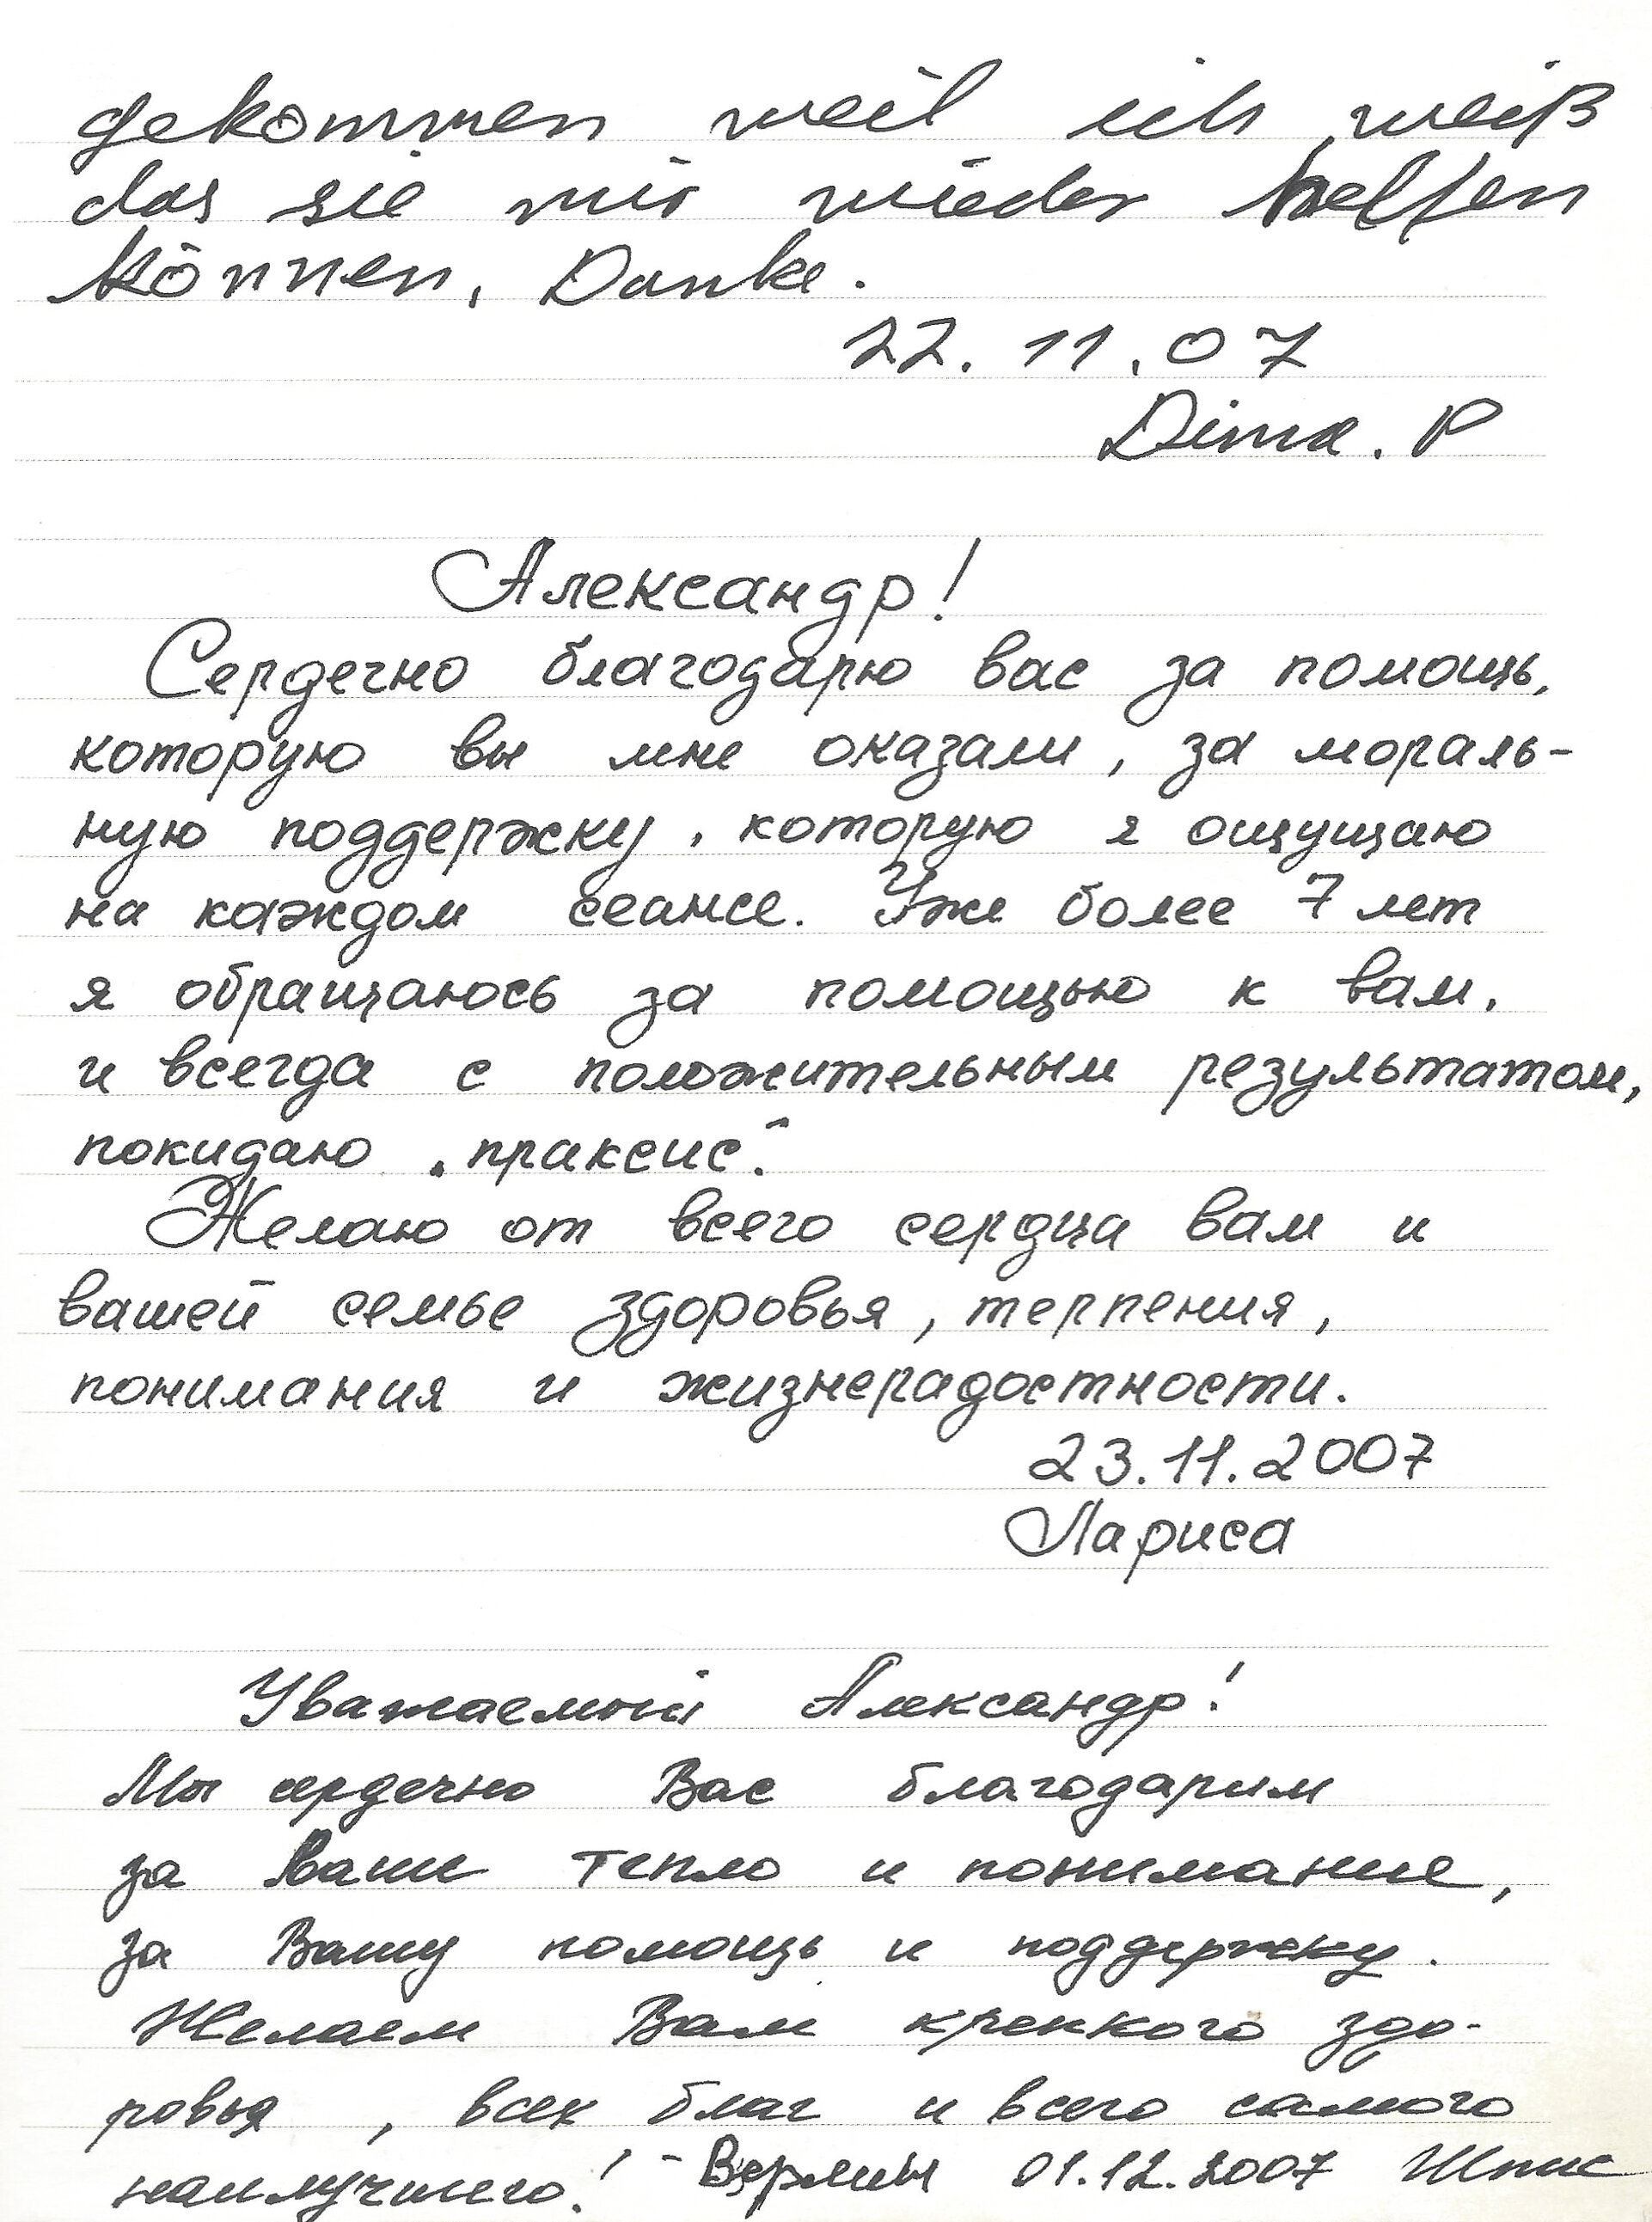 gekommen weil ich weiß
das sie mir wieder helfen
können, Danke.
22.11.07
Dima. P
Александр!
Сердечно благодарю вас за помощь,
которую вы мне оказали, за мораль-
ную поддержку, которую я ощущаю
на каждом сеансе. Уже более 7 лет
я обращаюсь за помощью к вам,
и всегда с положительным результатом,
покидаю „праксис".
Желаю от всего сердца вам и
вашей семье здоровья, терпения,
понимания и жизнерадостности.
23.11.2007
Лариса
Уважаемый Александр!
Мы сердечно Вас благодарим
за Ваше тепло и понимание,
за Вашу помощь и поддержку.
Желаем Вам крепкого здо-
ровья, всех благ и всего самого
наилучшего! - 01.12.2007 Шпис